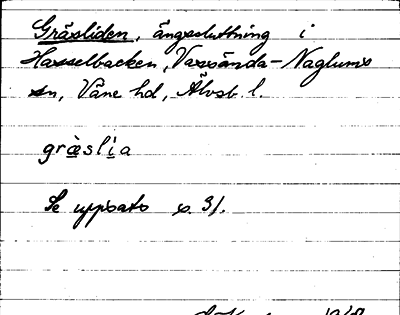 Gräsliden, ängssluttning i
Hasselbacken, Vassända-Naglums
sn, Väne hd, Älvsb. l.
gräslia
Se uppsats s. 31.